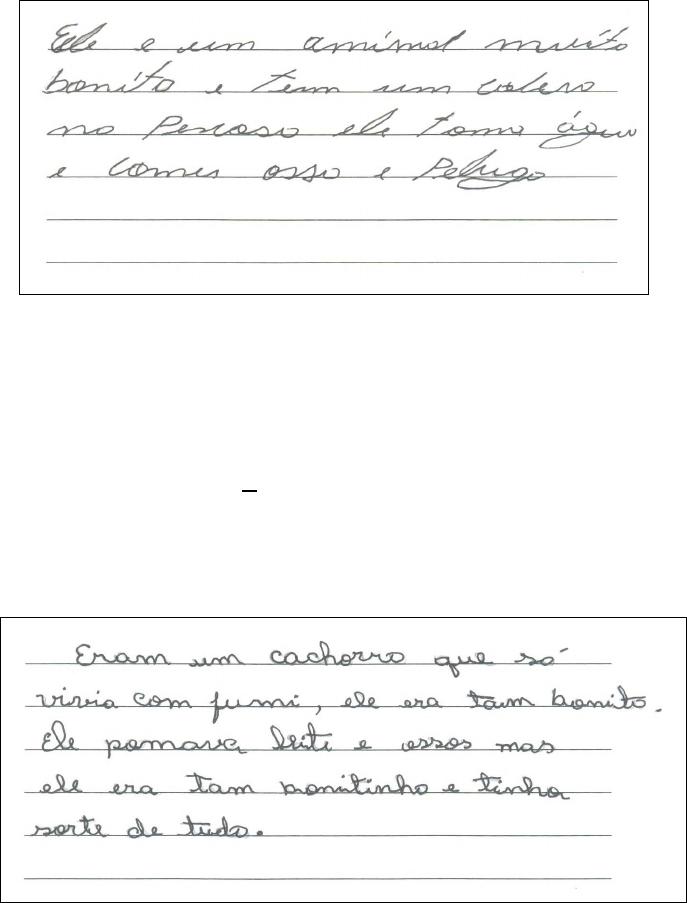 Ele e um amimal muito
bonito e tem um colero
no Pescoso ele toma água
e comes osso e
Eram um cachorro que só
vivia com fumi, ele era taum bomito.
Ele pomava leite e ossos mas
ele era tam bonitinho e tinha
sorte de tudo.